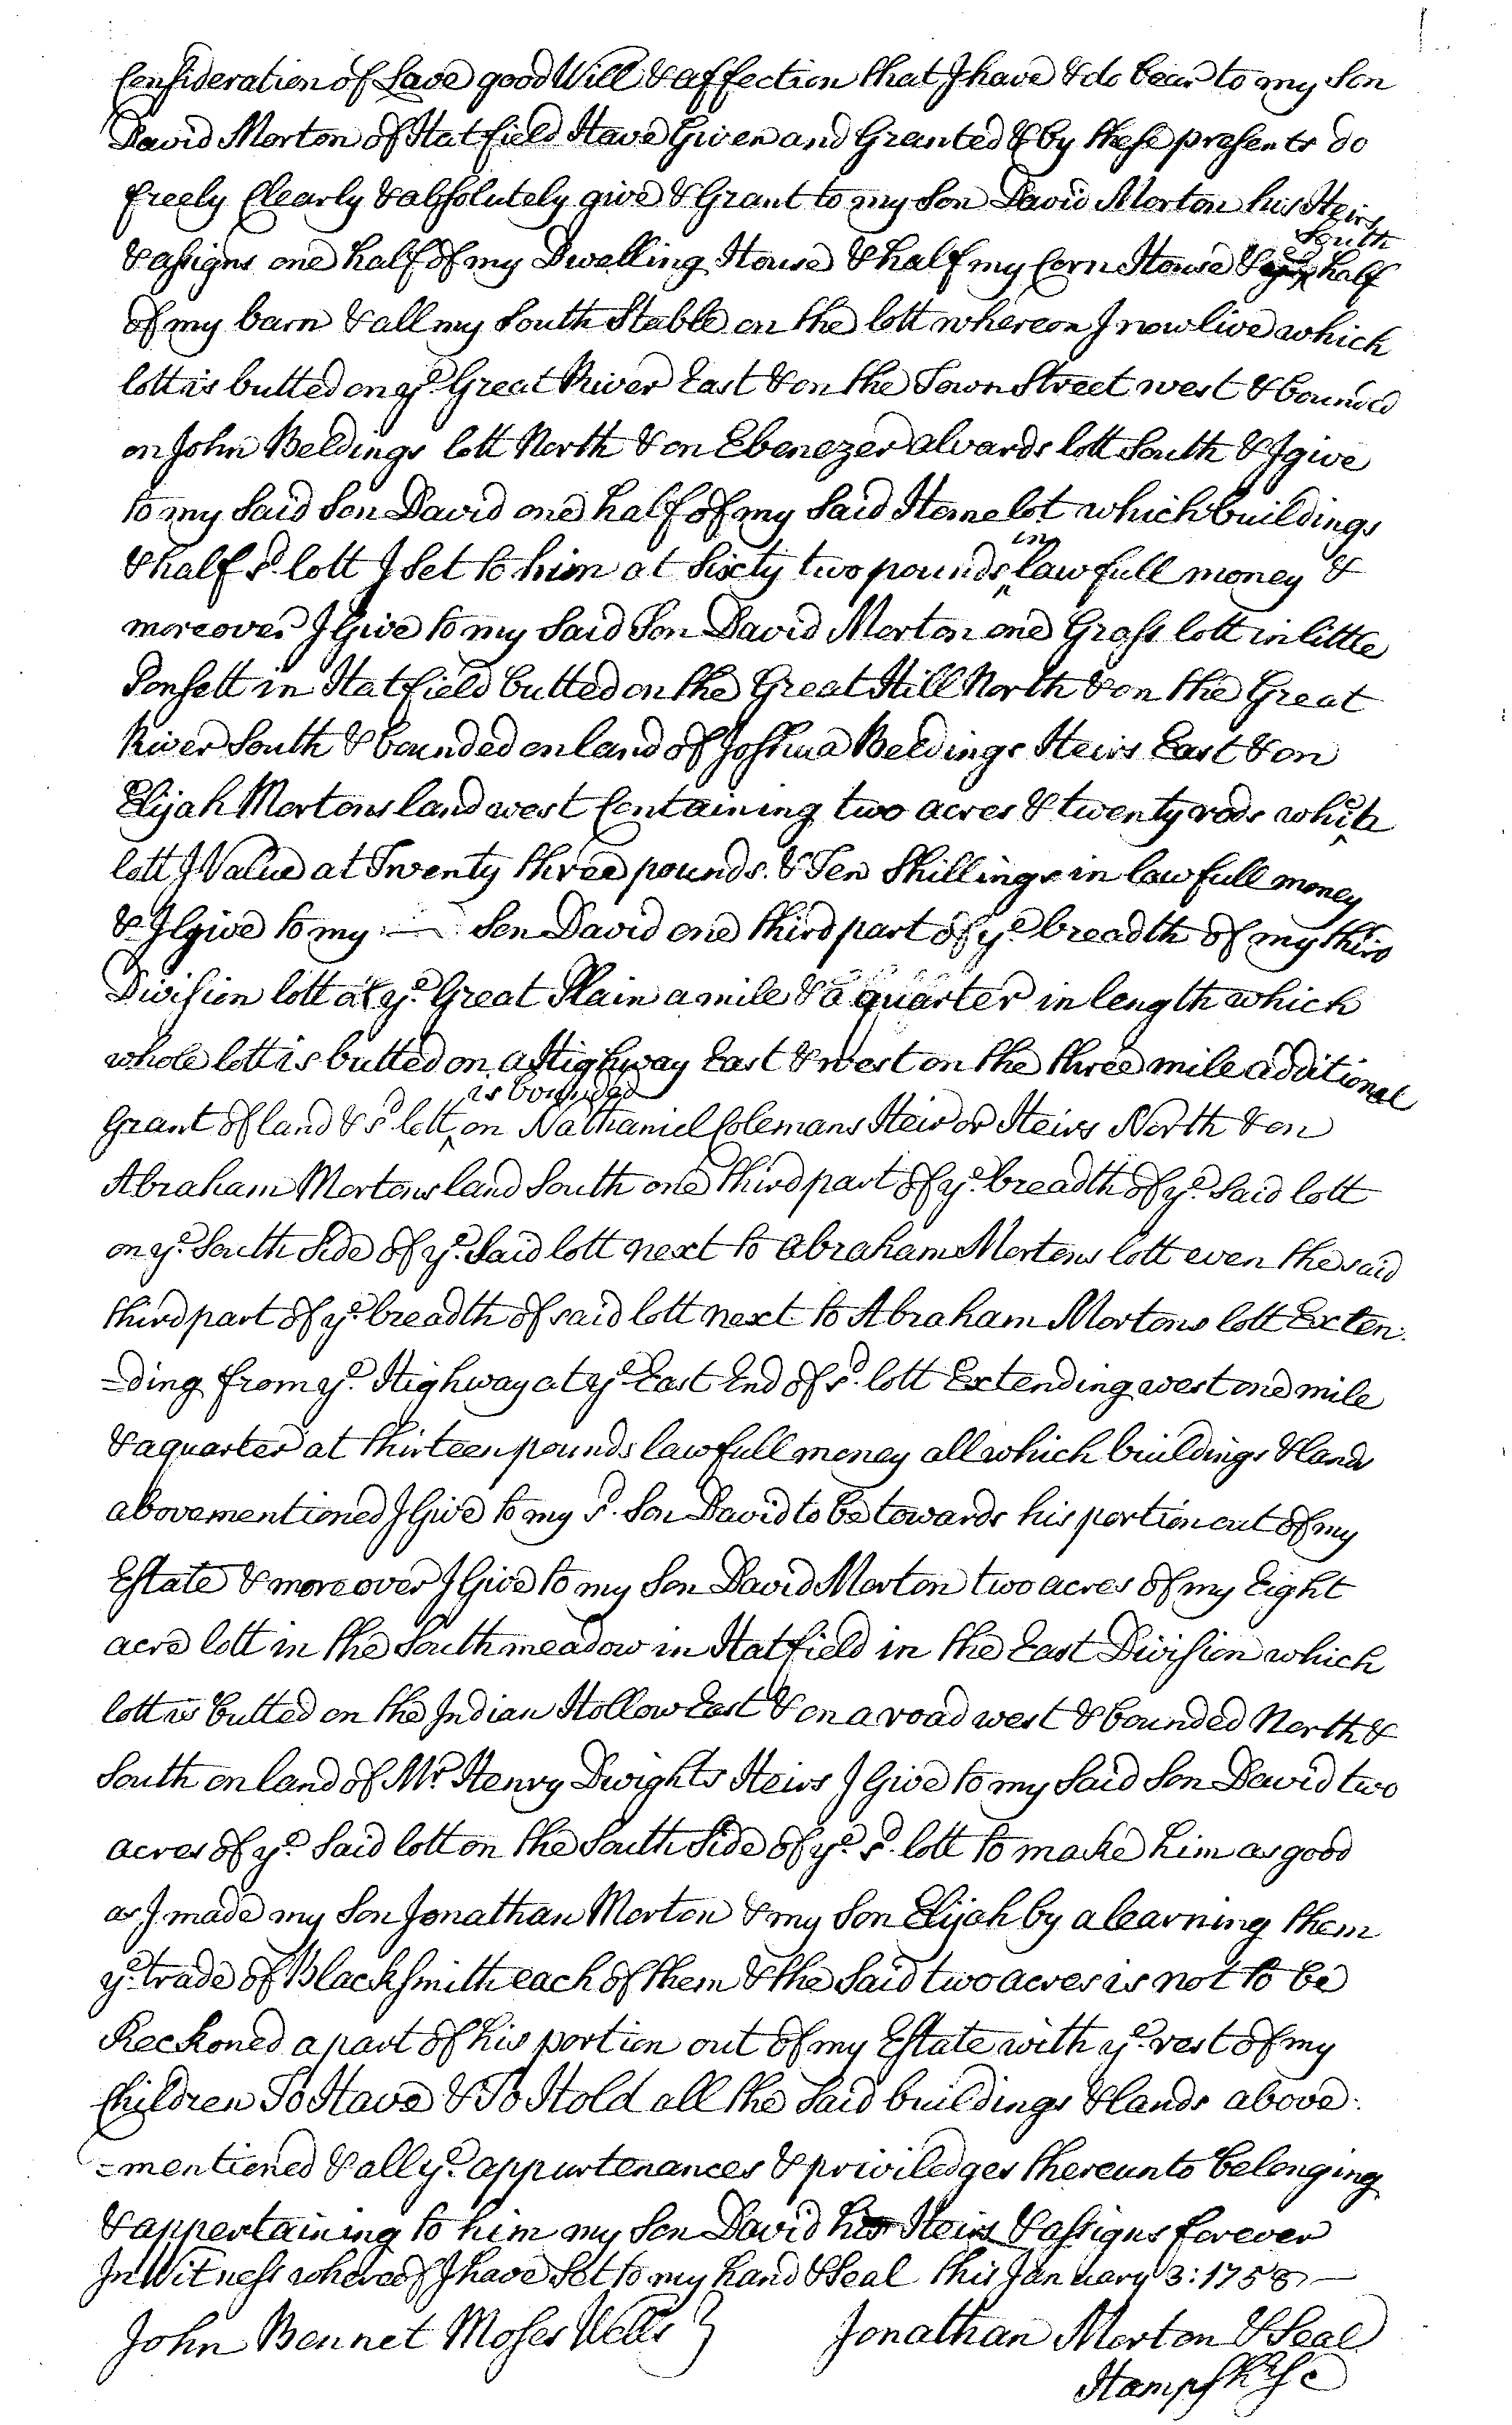 Consideration of Love good Will & affection that I have & do bear to my Son
David Morton of Hatfield Have Given and Granted & by these presents do
freely Clearly & absolutely give & Grant to my Son David Morton his Heirs
South
& assigns one half of my Dwelling House & half my Corn House & half
of my barn & all my South Stable on the lott whereon I now live which
lott is butted on ye Great River East & on the Town Street west & bounded
on John Beldings lott North & on Ebenezer alvards lott South & I give
to my Said Son David one half of my Said Home lot which buildings
in
& half sd lott I Set to him at Sixty two pounds lawfull money &
moreover I Give to my Said Son David Morton one Grass lott in little
Ponsett in Hatfield butted on the Great Hill North & on the Great
River South & bounded on land of Joshua Beldings Heirs East & on
Elijah Mortons land west Containing two acres & twenty rods which
lott I Value at Twenty three pounds & Ten Shillings in lawfull money
& I give to my Son David one third part of ye breadth of my third
Division lott at ye Great Plain a mile & a quarter in length which
whole lott is butted on a Highway East & west on the three mile additional
is bounded
Grant of land & sd lott on Nathaniel Colemans Heir or Heirs North & on
Abraham Mortons land South one third part of ye breadth of ye Said lott
on ye South Side of ye Said lott next to Abraham Mortons lott even the said
third part of ye breadth of said lott next to Abraham Mortons lott Exten:
=ding from ye Highway at ye East End of sd lott Extending west one mile
& a quarter at thirteen pounds lawfull money all which buildings & lands
abovementioned I Give to my sd Son David to be towards his portion out of my
Estate & moreover I Give to my Son David Morton two acres of my Eight
acre lott in the South meadow in Hatfield in the East Division which
lott is butted on the Indian Hollow East & on a road west & bounded North &
South on land of Mr Henry Dwights Heirs I Give to my Said Son David two
acres of ye Said lott on the South Side of ye sd lott to make him as good
as I made my Son Jonathan Morton & my Son Elijah by a learning them
ye trade of Blacksmith each of them & the Said two acres is not to be
Reckoned a part of his portion out of my Estate with ye rest of my
Children To Have & To Hold all the Said buildings & lands above:
=mentioned & all ye appurtenances & priviledges thereunto belonging
& appertaining to him my Son David his Heirs & assigns forever
In Witness whereof I have Set to my hand & Seal this January 3: 1758
John Bennet Moses Wells } Jonathan Morton & Seal
Hampsh Ss